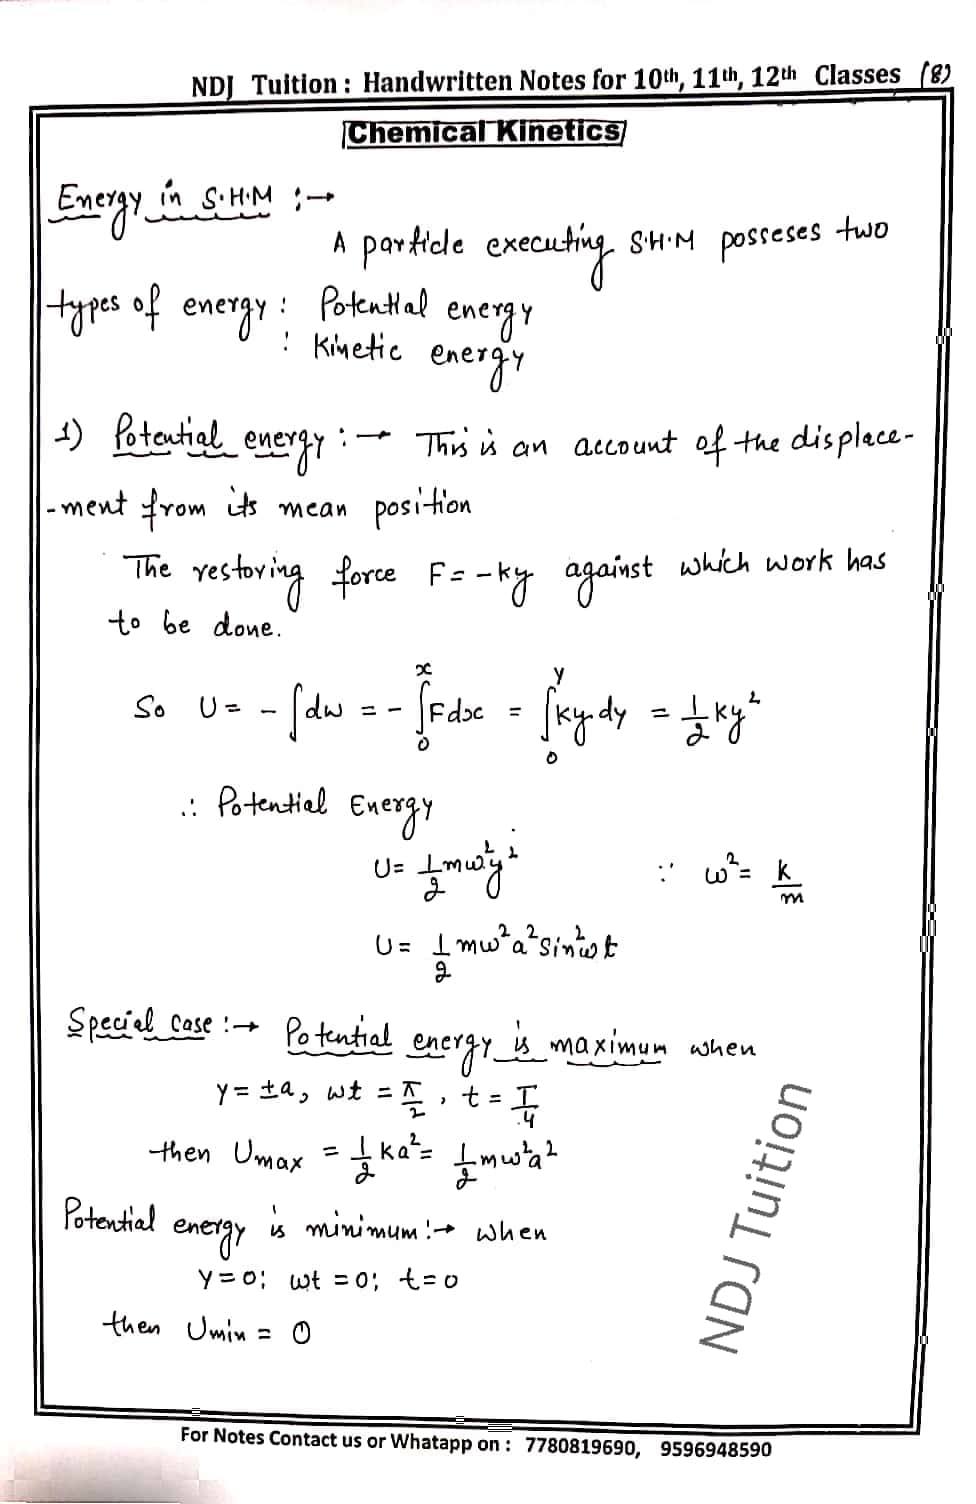 NDJ Tuition : Handwritten Notes for 10th, 11th, 12th Classes (8)
Chemical Kinetics
Energy in S.H.M :→
A particle executing S.H.M posseses two
types of energy : Potential energy
: Kinetic energy
1) Potential energy :→ This is an account of the displace-
-ment from its mean position
The restoring force F = -ky against which work has
to be done.
So U = - ∫dw = - ∫₀ˣ Fdx = ∫₀ʸ ky dy = 1/2 ky²
∴ Potential Energy
U = 1/2 mω²y² ∵ ω² = k/m
U = 1/2 mω²a² sin²ωt
Special Case :→ Potential energy is maximum when
y = ±a, ωt = π/2, t = T/4
then Umax = 1/2 ka² = 1/2 mω²a²
Potential energy is minimum :→ when
y = 0; ωt = 0; t = 0
then Umin = 0
NDJ Tuition
For Notes Contact us or Whatapp on : 7780819690, 9596948590